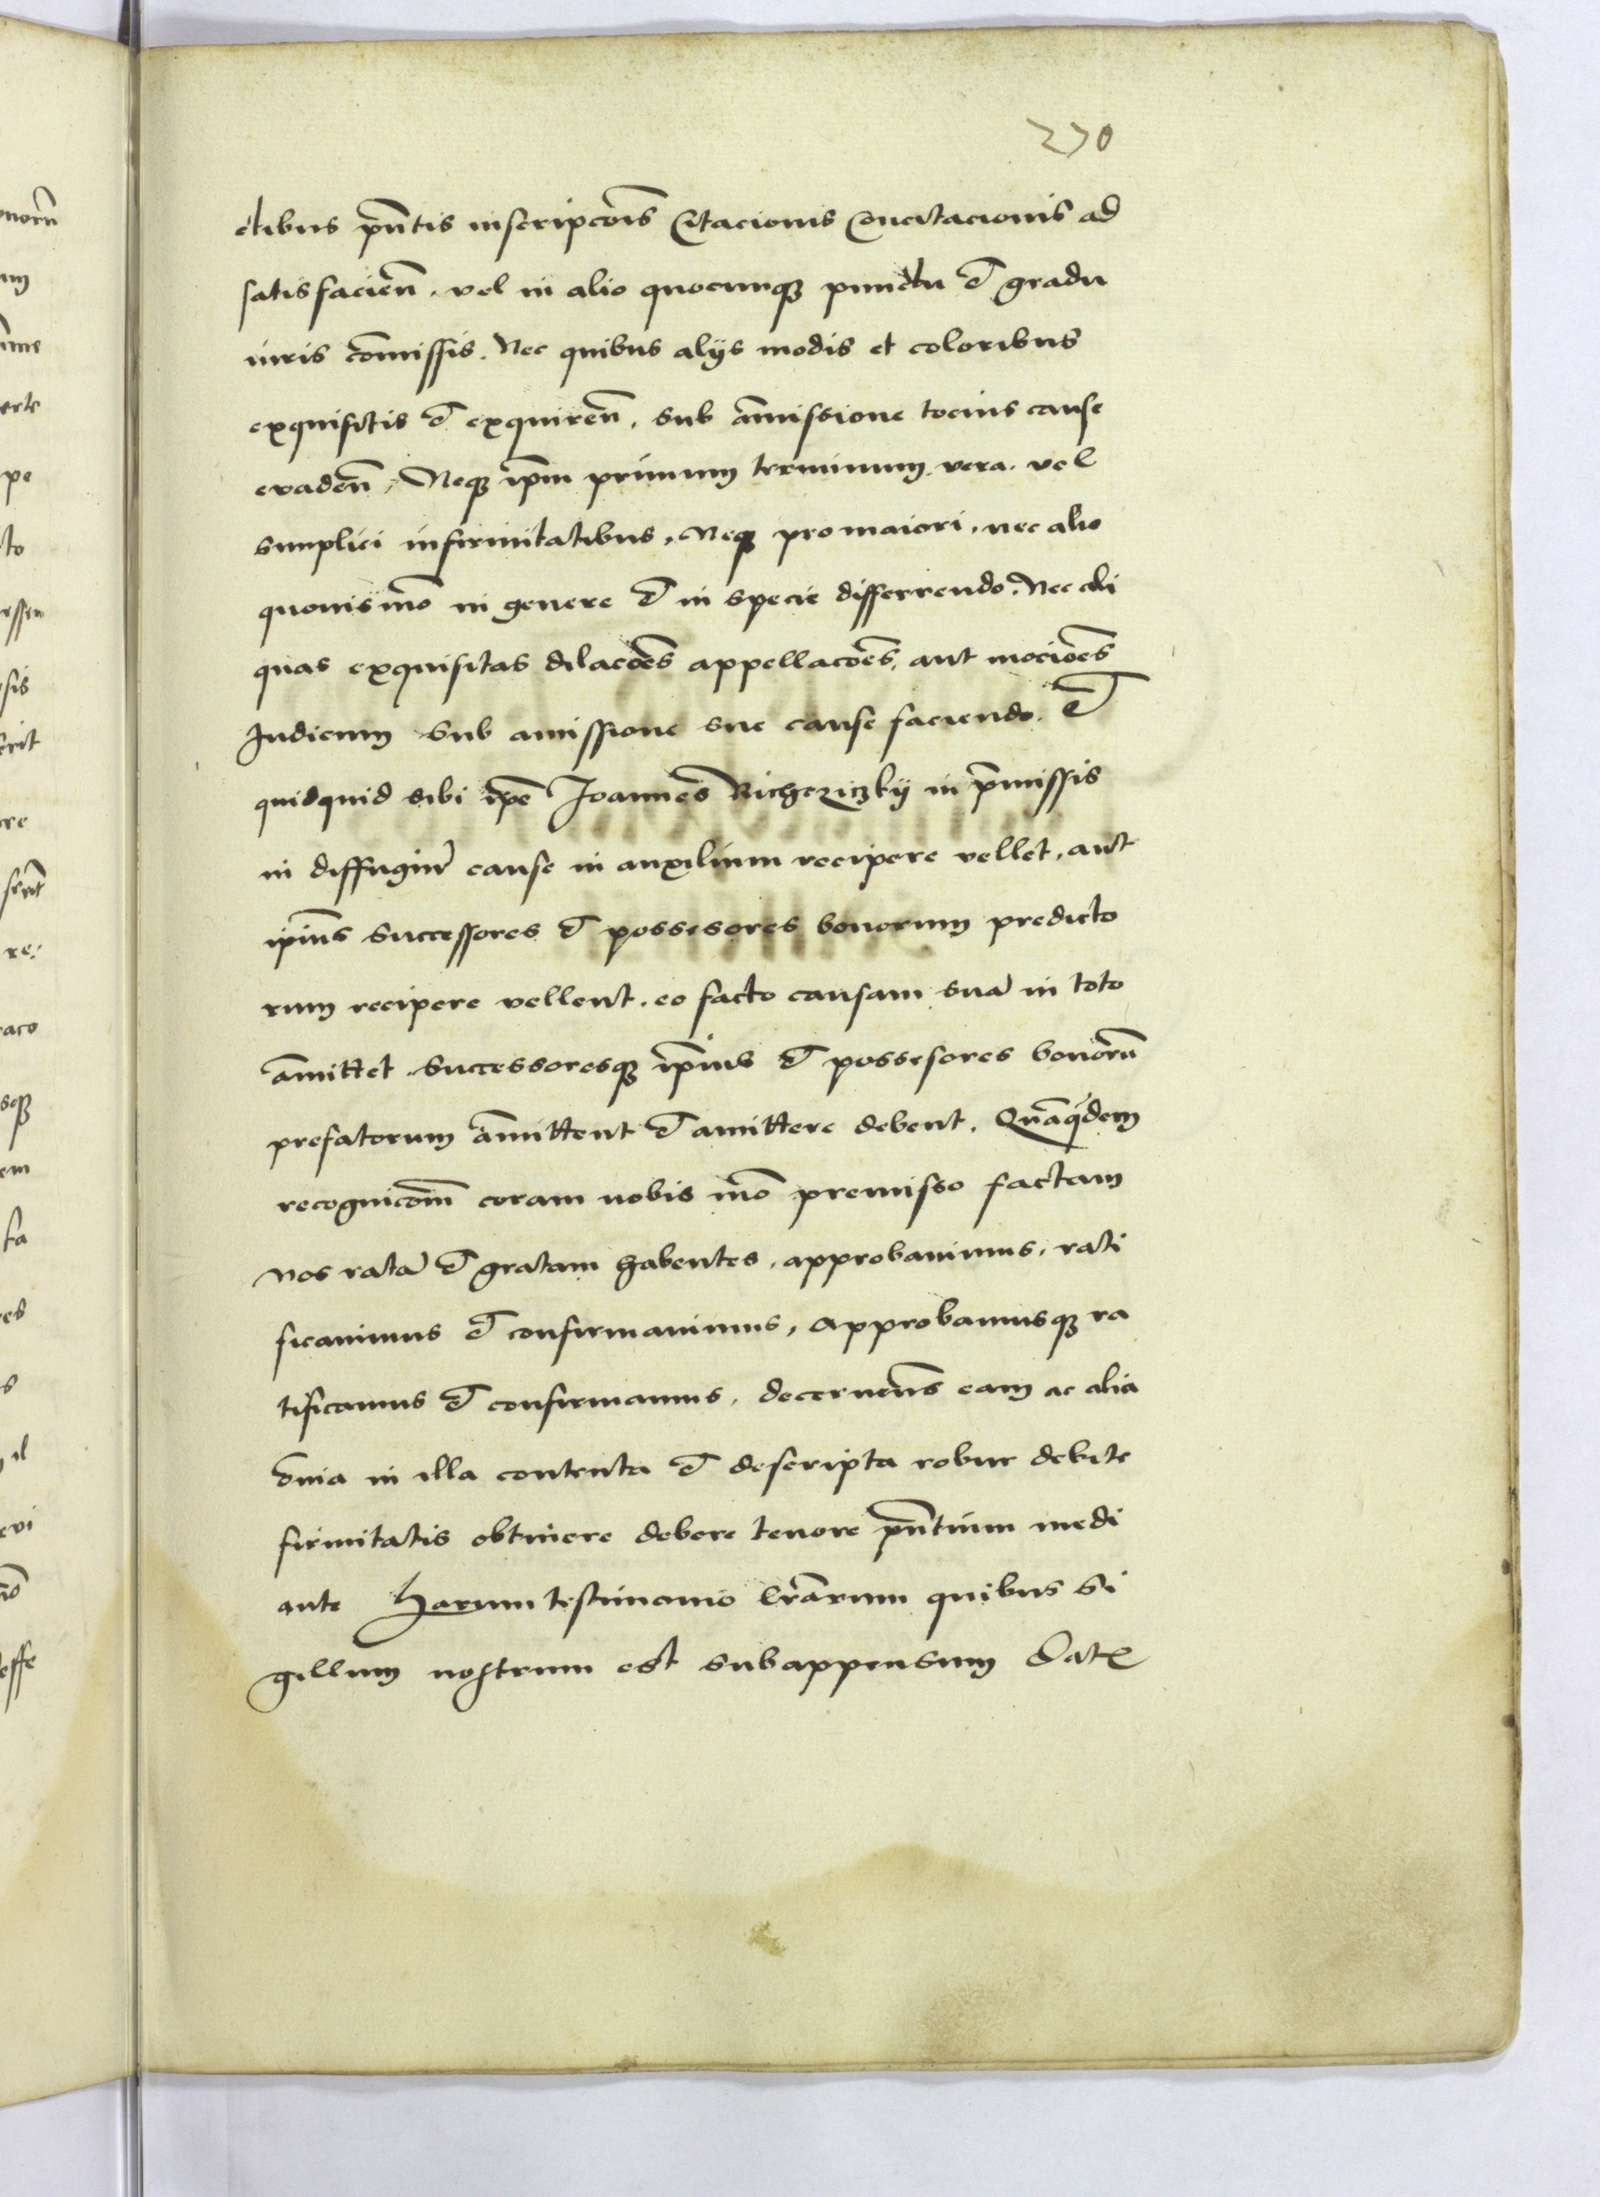 270
ctibus pn̄tis inscripcōis Citacionis Concitacionis ad
satisfacien̄. vel in alio quocumqꝫ punctu et gradu
iuris com̄issis. Nec quibus alÿs modis et coloribus
exquisitis et exquiren̄, sub am̄issione tocius cause
evaden̄, Neqꝫ ip̄m primum terminum vera. vel
simplici infirmitatibus, Neqꝫ pro maiori, nec alio
quouismo͞ in genere et in specie differrendo. Nec ali
quas exquisitas dilacōes appellacōes, aut mociōes
Iudicum sub amissione sue cause faciendo. Et
quidquid sibi ip̄e Joannes Bichericzkÿ in p̄missis
in diffugiu͞ cause in auxilium recipere vellet, aut
ip̄ius successores et possesores bonorum predicto
rum recipere vellent. eo facto causam sua͞ in toto
am̄ittet. Successoresqꝫ ip̄ius et possesores bonoru͞
prefatorum am̄ittent et amittere debent. Qua͞quidem
recognicōm̄ coram nobis mo͞ premisso factam
Nos rata͞ et gratam habentes, approbauimus, rati
ficauimus et confirmauimus, approbamusqꝫ ra
tificamus et confirmamus, decernen̄s eam ac alia
om̄ia in illa contenta et descripta robur debite
firmitatis obtinere debere tenore pn̄tium medi
ante Harum testimonio lr̄arum quibus Si
gillum nostrum est subappensum Dat